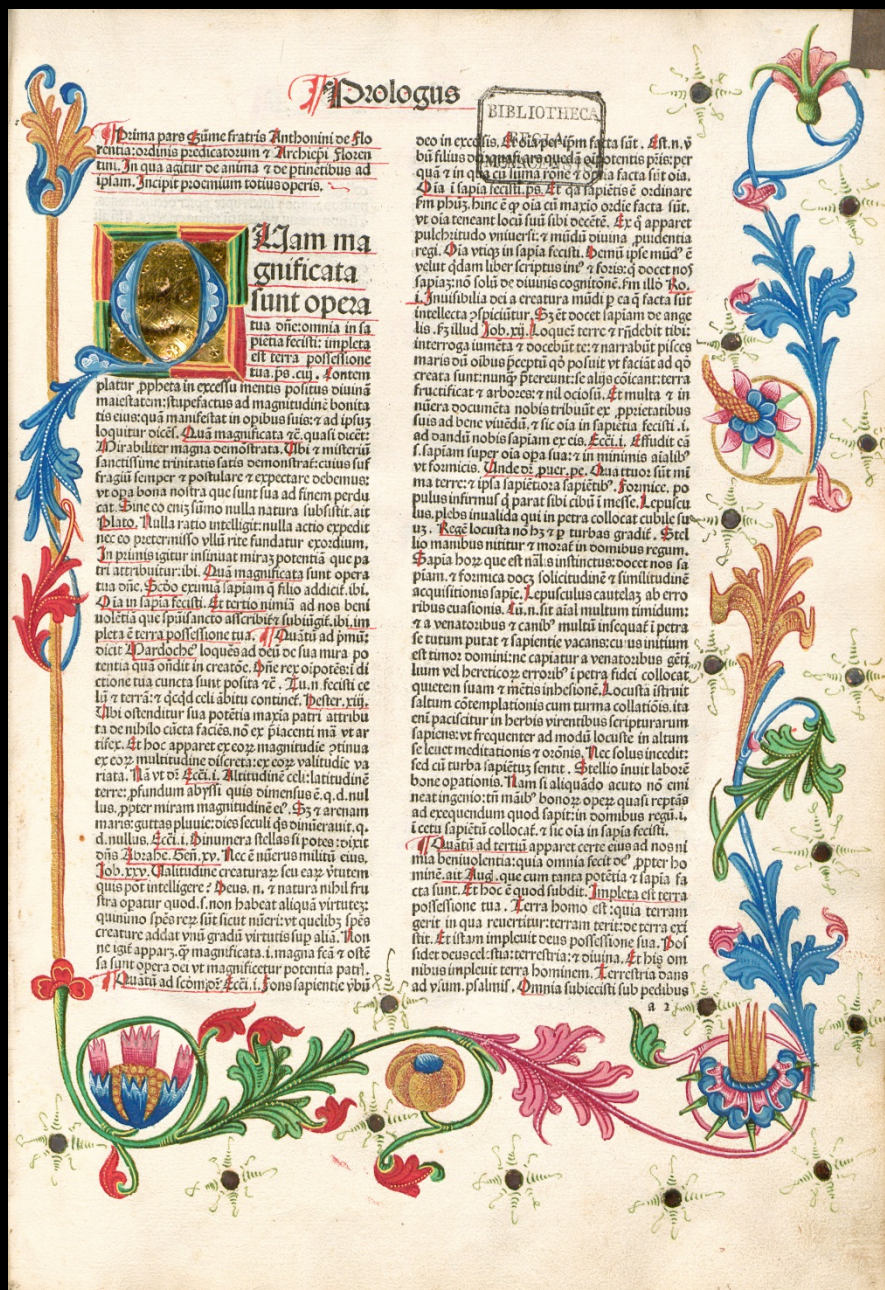 Prologus
BIBLIOTHECA
REGIA
MONACENSIS
Prima pars Sūme fratris Anthonini de Flo
rentia:ordinis predicatorum ⁊ Archiepi Floren
tini. In qua agitur de anima ⁊ de ptinētibus ad
ipsam. Incipit proemium totius operis.
QUam ma
gnificata
sunt opera
tua dñe:omnia in sa
piētia fecisti: impleta
est terra possessione
tua.ps.ciij. Contem
platur ꝓpheta in excessu mentis positus diuinā
maiestatem:stupefactus ad magnitudinē bonita
tis eius:quā manifestat in opibus suis:⁊ ad ipsuz
loquitur dicēs. Quā magnificata ⁊c̄.quasi dicēt:
Mirabiliter magna demōstrata. Ubi ⁊ misteriū
sanctissime trinitatis satis demonstrat:cuius suf
fragiū semper ⁊ postulare ⁊ expectare debemus:
vt opa bona nostra que sunt sua ad finem perdu
cat. Sine eo eniz sūmo nulla natura subsistit.ait
Plato. Nulla ratio intelligit:nulla actio expedit
nec eo pretermisso vllū rite fundatur exordium.
In primis igitur insinuat miraz potentiā que pa
tri attribuitur:ibi. Quā magnificata sunt opera
tua dñe. Scd̄o eximiā sapiam q̄ filio addicit.ibi.
Oīa in sapīa fecisti. Et tertio nimiā ad nos beni
uolētia que spūisancto asscribit ⁊ subiūgit.ibi.im
pleta ē terra possessione tua. Quātū ad pmū:
dicit Mardocheꝰ loquēs ad deū de sua mira po
tentia quā ōndit in creatōe. Dñe rex oīpotēs:ī di
ctione tua cuncta sunt posita ⁊c̄. Tu.n.fecisti ce
lū ⁊ terrā:⁊ q̄cqd celi ābitu continet. Hester.xiij.
Ubi ostenditur sua potētia maxīa patri attribu
ta de nihilo cūcta faciēs.nō ex piacenti mā vt ar
tifex. Et hoc apparet ex eoꝝ magnitudie ꝯtinua
ex eoꝝ multitudine discreta:ex eoꝝ valitudie va
riata. Nā vt dr̄ Ecci.i. Altitudinē celi:latitudinē
terre:ꝓfundum abyssi quis dimensus ē.q.d.nul
lus.ꝓpter miram magnitudinē eiꝰ. Sz ⁊ arenam
maris:guttas pluuie:dies seculi q̄s dinūerauit.q.
d.nullus. Ecci.i. Dinumera stellas si potes:dixit
dñs Abrahe. Gen.xv. Nec ē nūerus militū eius.
Job.xxv. Ualitudinē creaturaꝝ seu earꝝ ꝟtutem
quis pot intelligere? Deus.n.⁊ natura nihil fru
stra opatur quod.s.non habeat aliquā virtutez:
quinimo spēs reꝝ sūt sicut nūeri:vt quelibz spēs
creature addat vnū gradū virtutis sup aliā. Non
ne igit̄ apparz.ꝙ magnificata.i.magna fcā ⁊ ostē
sa sunt opera dei vt magnificetur potentia patr̄.
Quātū ad scōm:por̄ Ecci.i. Fons sapientie ꝟbū
deo in excelsis. Et oīa per ip̄m facta sūt. Est.n.ꝟ
bū filius dei quasi ars quedā oīpotentis pr̄is:per
quā ⁊ in qua cū suma rōne ⁊ opīa facta sūt oīa.
Oīa ī sapīa fecisti.ps. Et qa sapiētis ē ordinare
ẜm phūz.hinc ē ꝙ oīa cū maxīo ordīe facta sūt.
vt oīa teneant locū suū sibi decētē. Ex q̄ apparet
pulchritudo vniuersi:⁊ mūdū diuina ꝓuidentia
regi. Oīa vtiqꝫ in sapīa fecisti. Demū ipse mūdꝰ ē
velut q̄dam liber scriptus intꝰ ⁊ foris:q̄ docet nos
sapiaz:nō solū de diuinis cognitōnē.ẜm illō Ro.
i. Inuisibilia dei a creatura mūdi p ea q̄ facta sūt
intellecta ꝯspiciūtur. Sz et docet sapiam de ange
lis.ẜz illud Job.xij. Loquere terre ⁊ rn̄debit tibi:
interroga iumēta ⁊ docebūt te:⁊ narrabūt pisces
maris dn̄ oībus p̄ceptū qd̄ posuit vt faciāt ad qd̄
creata sunt:nunqꝫ p̄tereunt:se alijs cōicant:terra
fructificat ⁊ arbores:⁊ nil ociosū. Et multa ⁊ in
nūera documēta nobis tribuūt ex ꝓprietatibus
suis ad bene viuēdū.⁊ sic oīa in sapiētia fecisti.i.
ad dandū nobis sapiam ex eis. Ecci.i. Effudit eā
.s.sapiam super oīa opa sua:⁊ in minimis aīalibꝰ
vt formicis. Unde dr̄ puer.pe. Quattuor sūt mī
ma terre:⁊ ip̄la sapiētiora sapiētibꝰ. Formice.po
pulus infirmus q̄ parat sibi cibū ī messe. Lepuscu
lus.plebs inualida qui in petra collocat cubile su
uz. Regē locusta nō hz ⁊ p turbas gradit̄. Stel
lio manibus nititur ⁊ morat̄ in domibus regum.
Sapīa hoꝝ que est nāl:s instinctus:docet nos sa
piam.⁊ formica docz solicitudinē ⁊ similitudinē
acquisitionis sapie. Lepusculus cautelaz ab erro
ribus euasionis. Cū.n.sit aīal multum timidum:
⁊ a venatoribus ⁊ canibꝰ multū insequat̄ ī petra
se tutum putat ⁊ sapientie vacans:cuius initium
est timor domini:ne capiatur a venatoribus gētī
lium vel hereticoꝝ erroribꝰ ī petra fidei collocat
quietem suam ⁊ mētis inhesionē. Locustā īstruit
saltum cōtemplationis cum turma collatiōis.ita
enī paciscitur in herbis virentibus scripturarum
sapiens:vt frequenter ad modū locuste in altum
se leuet meditationis ⁊ orōnis. Nec solus incedit:
sed cū turba sapiētuz sentit. Stellio īnuit laborē
bone opationis. Nam si aliquādo acuto nō emi
neat ingenio:tn̄ māibꝰ bonoꝝ opeꝝ quasi reptās
ad exequendum quod sapit:in domibus regū.i.
ī cetu sapiētū collocat̄.⁊ sic oīa in sapīa fecisti.
Quātū ad tertiū apparet certe eius ad nos ni
mia beniuolentia:quia omnia fecit deꝰ.ꝓpter ho
minē.ait Aug.que cum tanta potētia ⁊ sapīa fa
cta sunt. Et hoc ē quod subdit. Impleta est terra
possessione tua. Terra homo est:quia terram
gerit in qua reuertitur:terram terit:de terra exi
stit. Et istam impleuit deus possessione sua. Pos
sidet deus celestia:terrestria:⁊ diuina. Et his om
nibus impleuit terra hominem. Terrestria dans
ad vsum.psalmis. Omnia subiecisti sub pedibus
a 2